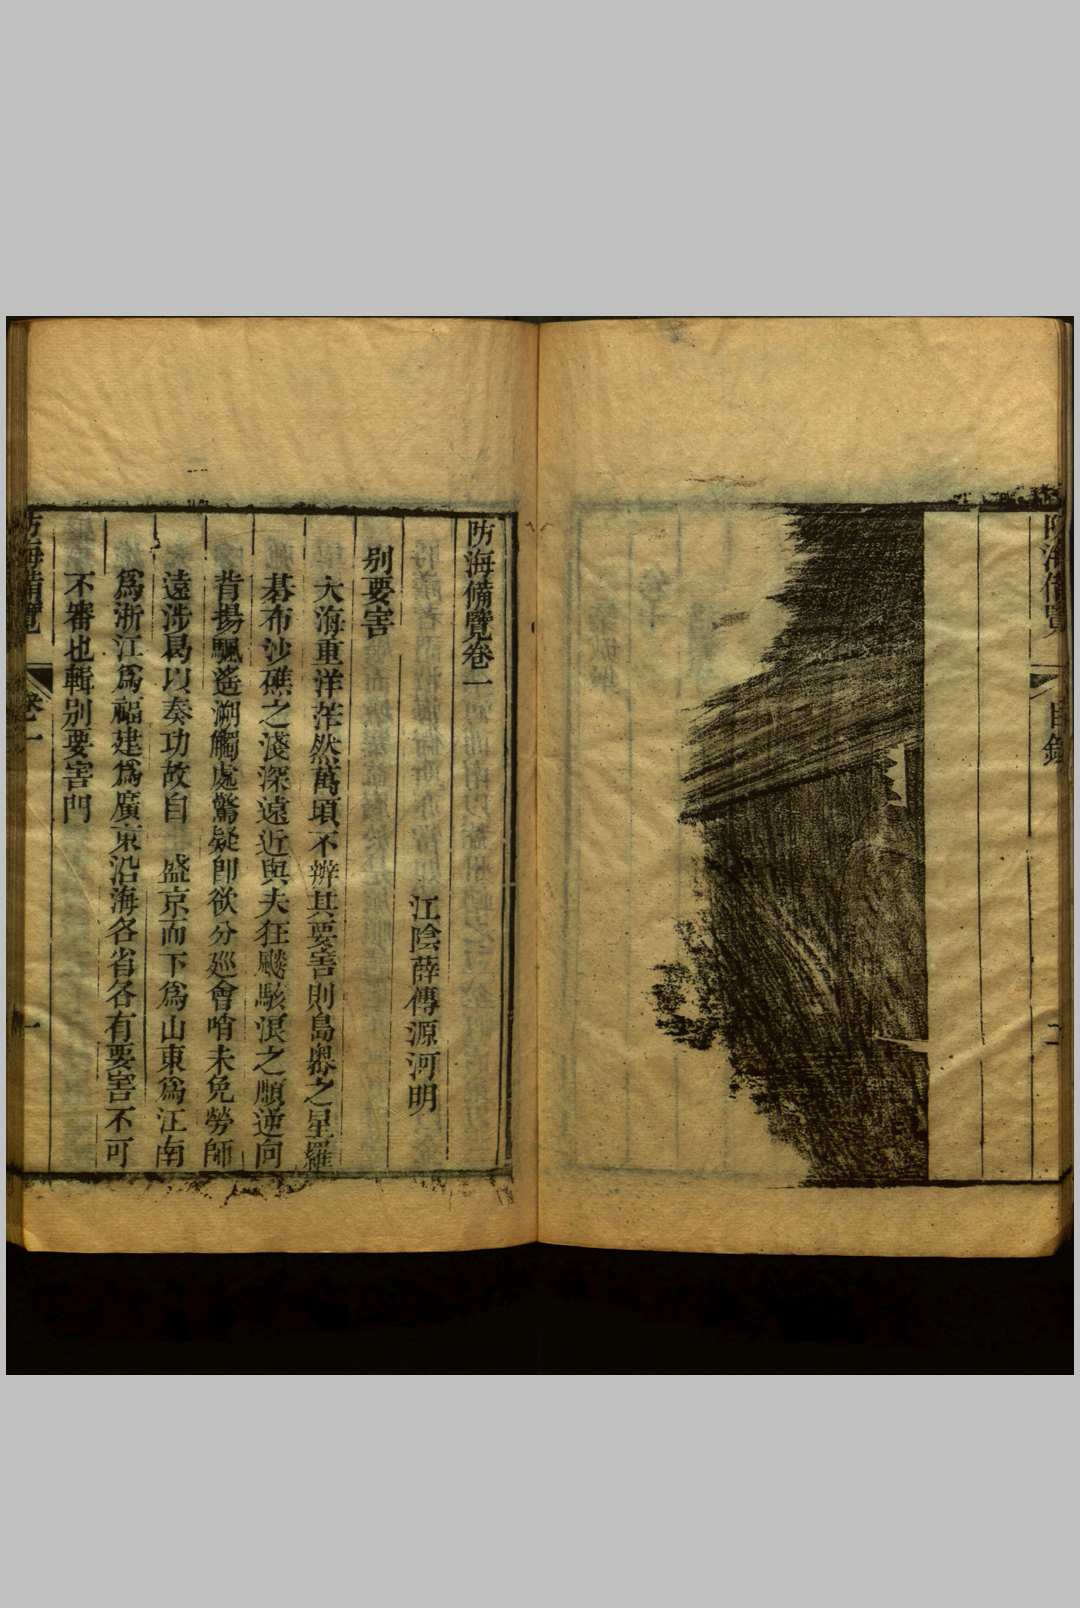 防海備覽
目錄
二
防海備覽卷一
江陰薛傳源河明
別要害
大海重洋茫然萬頃不辨其要害則島嶴之星羅
碁布沙礁之淺深遠近與夫狂飈駭溟之順逆向
背揚颿遙溯觸處驚疑卽欲分廵會哨未免勞師
遠涉曷以奏功故自盛京而下爲山東爲江南
爲浙江爲福建爲廣東沿海各省各有要害不可
不審也輯別要害門
防海備覽
卷一
一